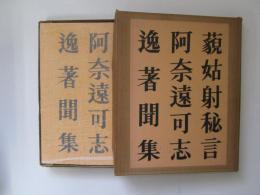 藐姑射秘言
阿奈遠可志
逸著聞集
阿奈遠可志
逸著聞集